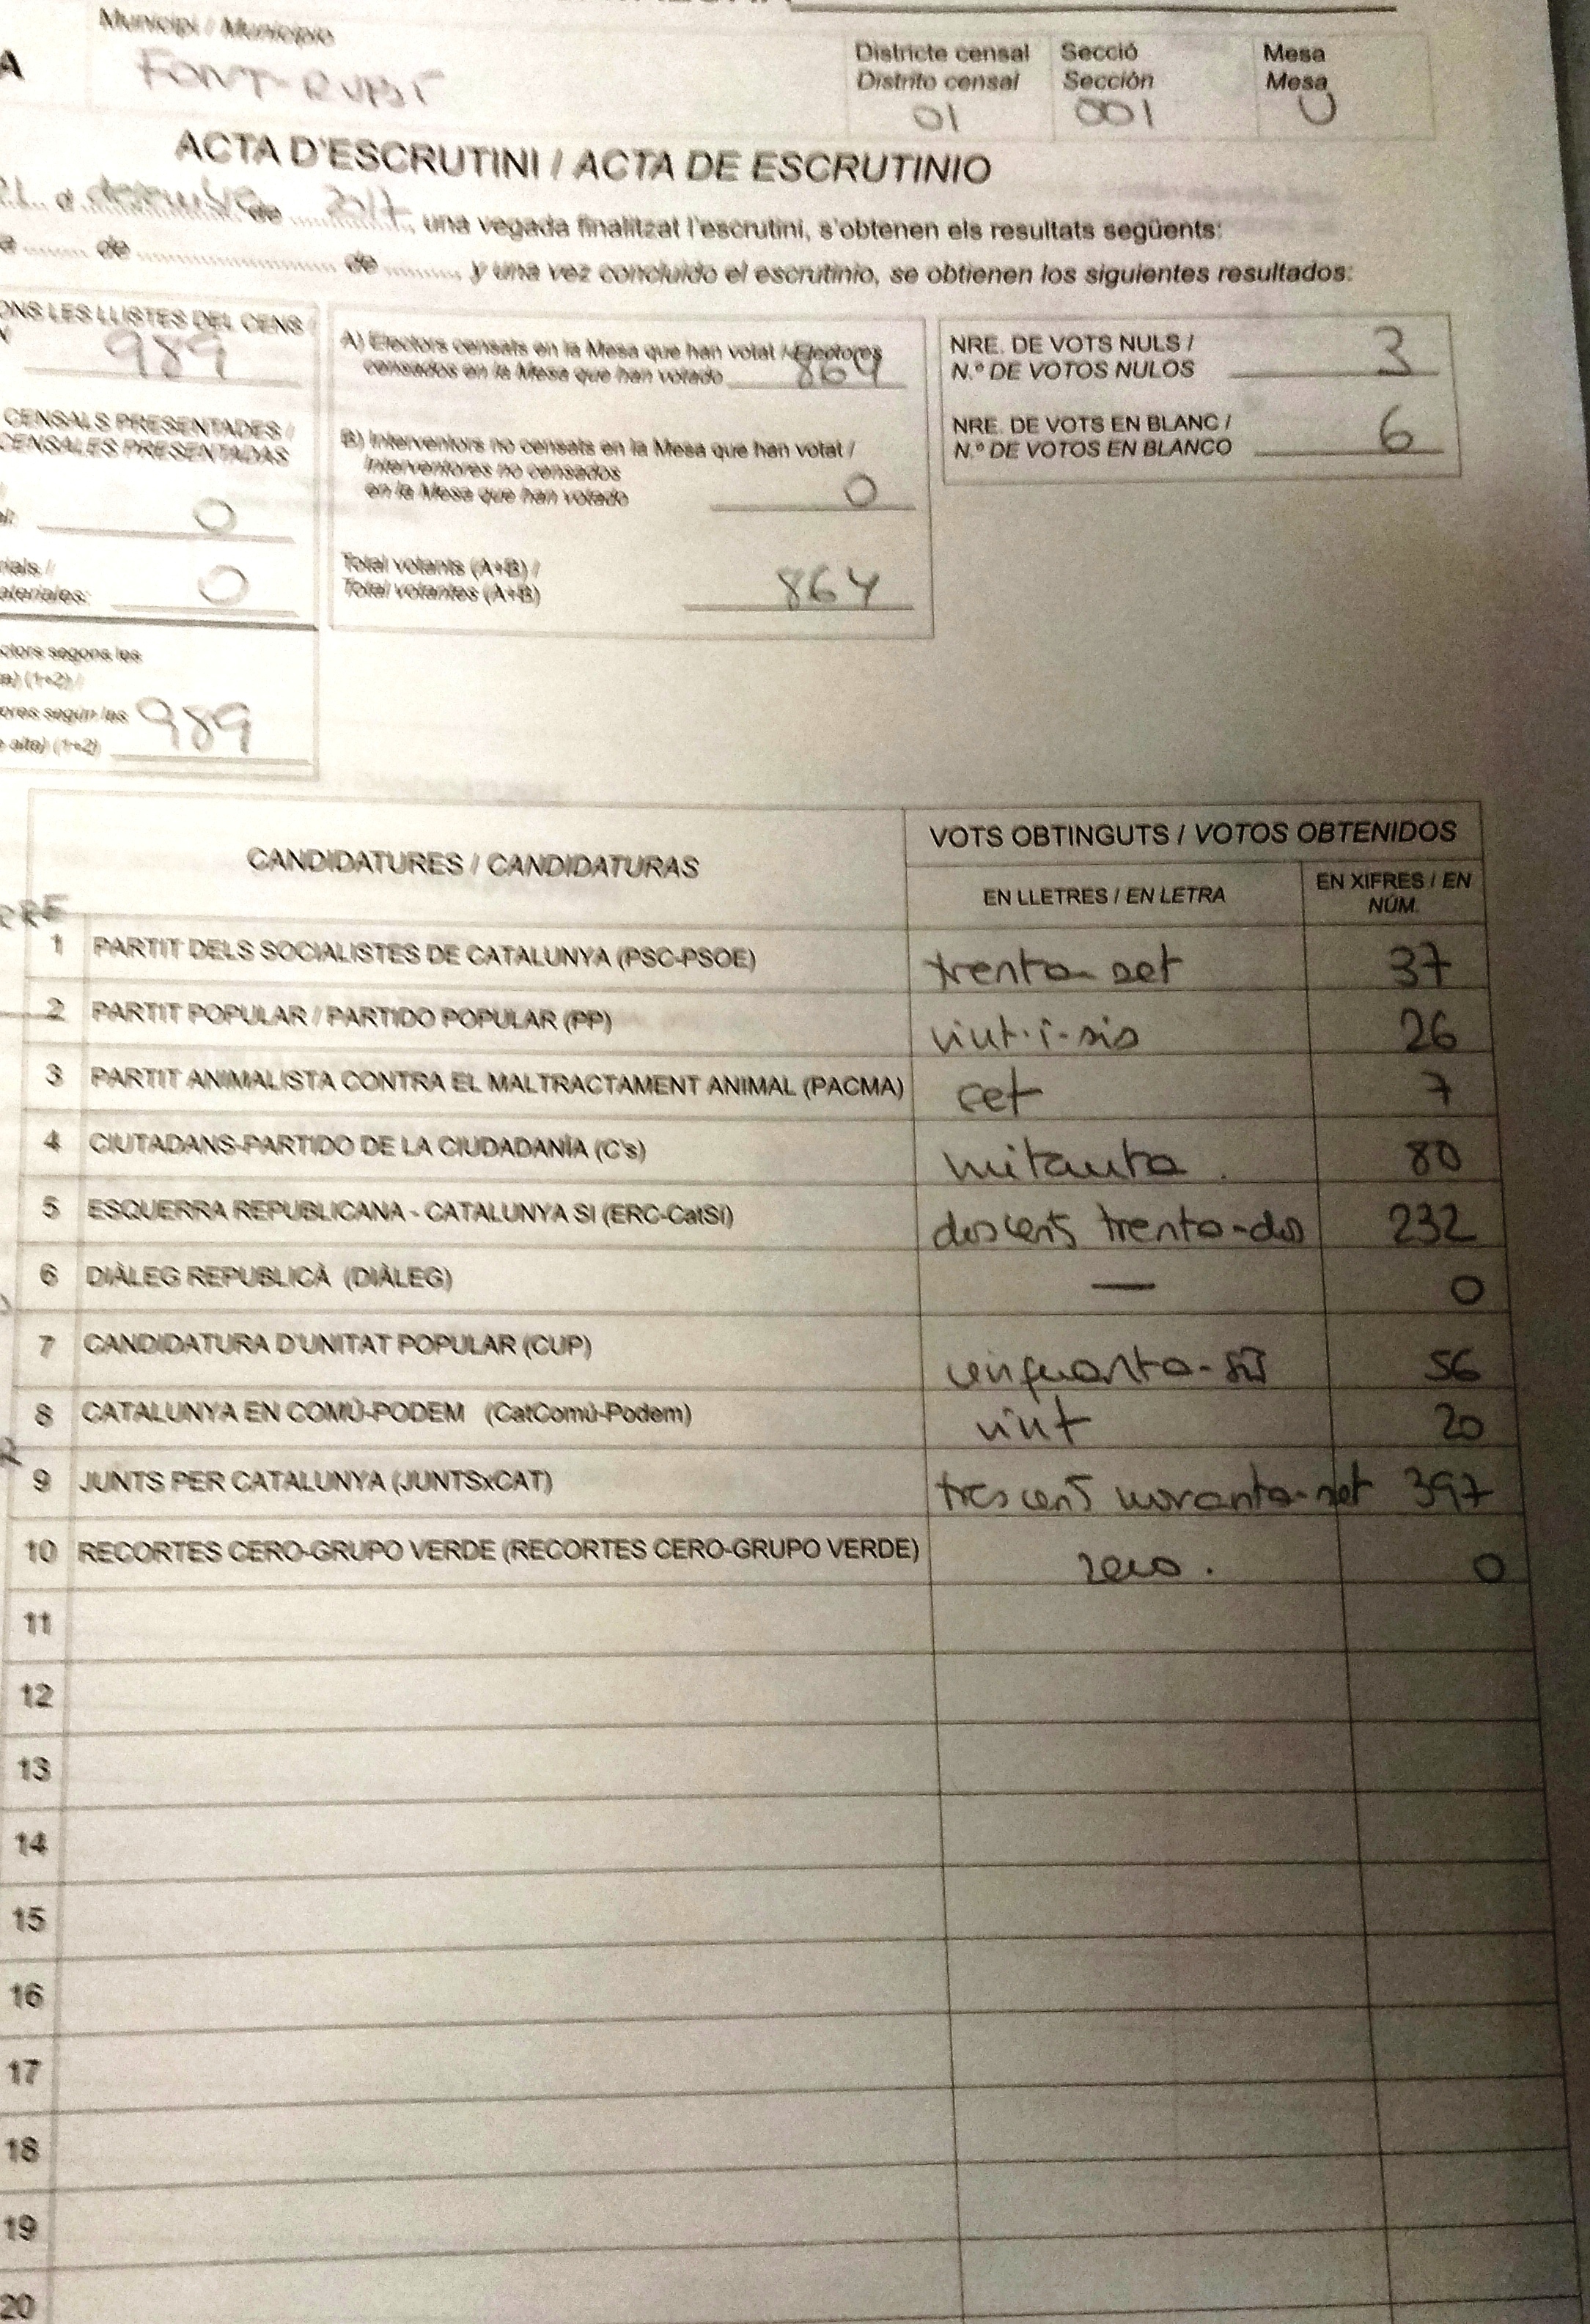 Municipi / Municipio
A
FONT-RUBÍ
Districte censal Secció Mesa
Distrito censal Sección Mesa
01 001 U
ACTA D'ESCRUTINI / ACTA DE ESCRUTINIO
d desembre de 2017, una vegada finalitzat l'escrutini, s'obtenen els resultats següents:
a ........ de ........ de ........, y una vez concluido el escrutinio, se obtienen los siguientes resultados:
ONS LES LLISTES DEL CENS /
989
CENSALS PRESENTADES /
CENSALES PRESENTADAS
al: 0
rials /
ateriales: 0
ctors segons les
ta) (1+2) /
ores según las
e alta) (1+2) 989
A) Electors censats en la Mesa que han votat / Electores
censados en la Mesa que han votado 864
B) Interventors no censats en la Mesa que han votat /
Interventores no censados
en la Mesa que han votado 0
Total votants (A+B) /
Total votantes (A+B) 864
NRE. DE VOTS NULS /
N.º DE VOTOS NULOS 3
NRE. DE VOTS EN BLANC /
N.º DE VOTOS EN BLANCO 6
CANDIDATURES / CANDIDATURAS
VOTS OBTINGUTS / VOTOS OBTENIDOS
EN LLETRES / EN LETRA
EN XIFRES / EN
NÚM.
1 PARTIT DELS SOCIALISTES DE CATALUNYA (PSC-PSOE) trenta-set 37
2 PARTIT POPULAR / PARTIDO POPULAR (PP) vint-i-sis 26
3 PARTIT ANIMALISTA CONTRA EL MALTRACTAMENT ANIMAL (PACMA) set 7
4 CIUTADANS-PARTIDO DE LA CIUDADANÍA (C's) vuitanta. 80
5 ESQUERRA REPUBLICANA - CATALUNYA SI (ERC-CatSí) doscents trenta-dos 232
6 DIÀLEG REPUBLICÀ (DIÀLEG) — 0
7 CANDIDATURA D'UNITAT POPULAR (CUP) cinquanta-sis 56
8 CATALUNYA EN COMÚ-PODEM (CatComú-Podem) vint 20
9 JUNTS PER CATALUNYA (JUNTSxCAT) trescents noranta-set 397
10 RECORTES CERO-GRUPO VERDE (RECORTES CERO-GRUPO VERDE) zero. 0
11
12
13
14
15
16
17
18
19
20